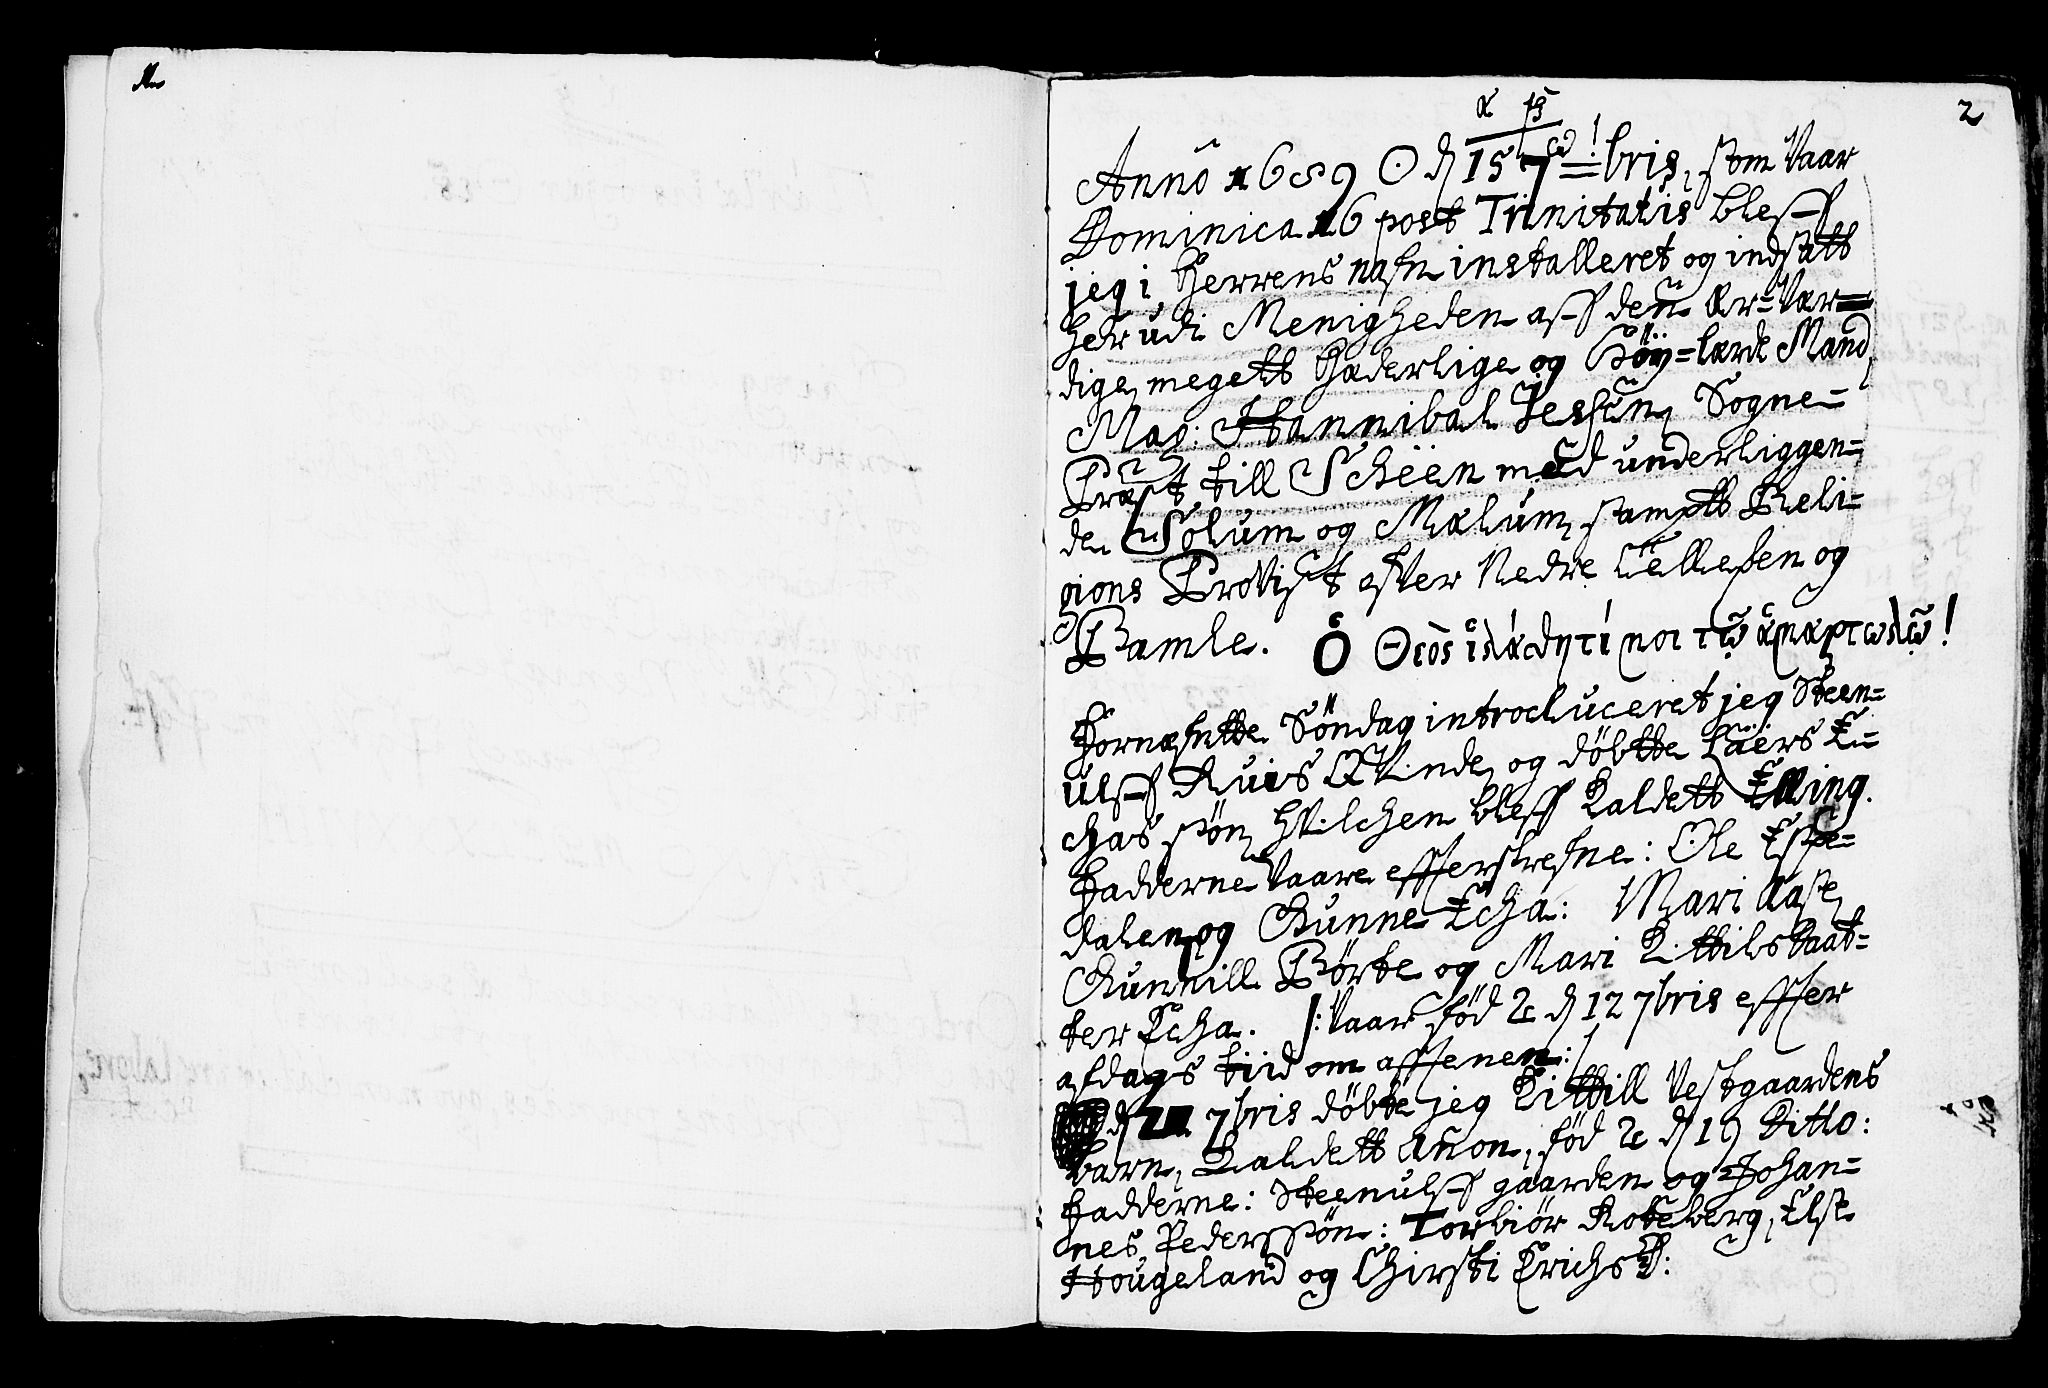 2
α 15 ω!
Anno 1689 ☉ d 15 7bris, som Vaar
Dominica 16 post Trinitatis bleff
jeg i Herrens nafn installeret og indsatt
her udi Menigheden aff den Ær=Vær=
dige, megett Hæderlige og Höy=lærde Mand,
Mag: Hannibal Jessen, Sogne=
Præst till Scheen med underliggen=
de Solum og Mælum, sampt Reli=
gions Provist ofver Nedre Tellesen og
Bamle. Ὁ Θεὸς ἱλάσθητί μοι τῷ ἁμαρτωλῷ!
Fornefnte Söndag introduceret jeg Steen=
ulff Ruis QVinde, og döbte Laers E=
chas sön, hVilchen bleff Kaldett Elling.
Fadderne Vaare effterskrefne: Ole Espe=
dalen, og Gunne Echa: Mari Aase,
Gunnill Börte og Mari Kittilsdaat=
ter Echa. /: Vaar föd d 12 7bris effter
afdags tiid om afftenen :/
d 7bris döbte jeg Kittill Vestgaardens
barn, Kaldett Anon, föd d 19 Ditto:
Fadderne: Steenulff gaarden og Johan=
nes Pederssön: Torbiör Roteberg, Else
Hougeland og Chirsti Erichs D: